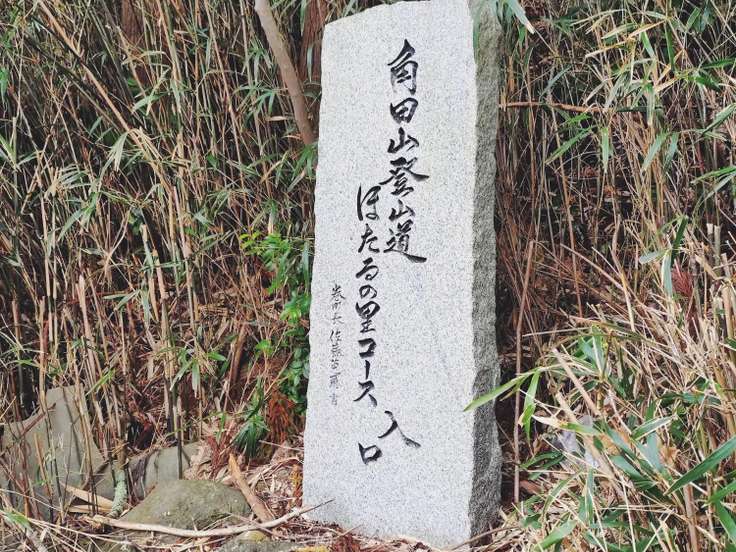 角田山登山道
ほたるの里コース
入口
巻町長 佐藤
書